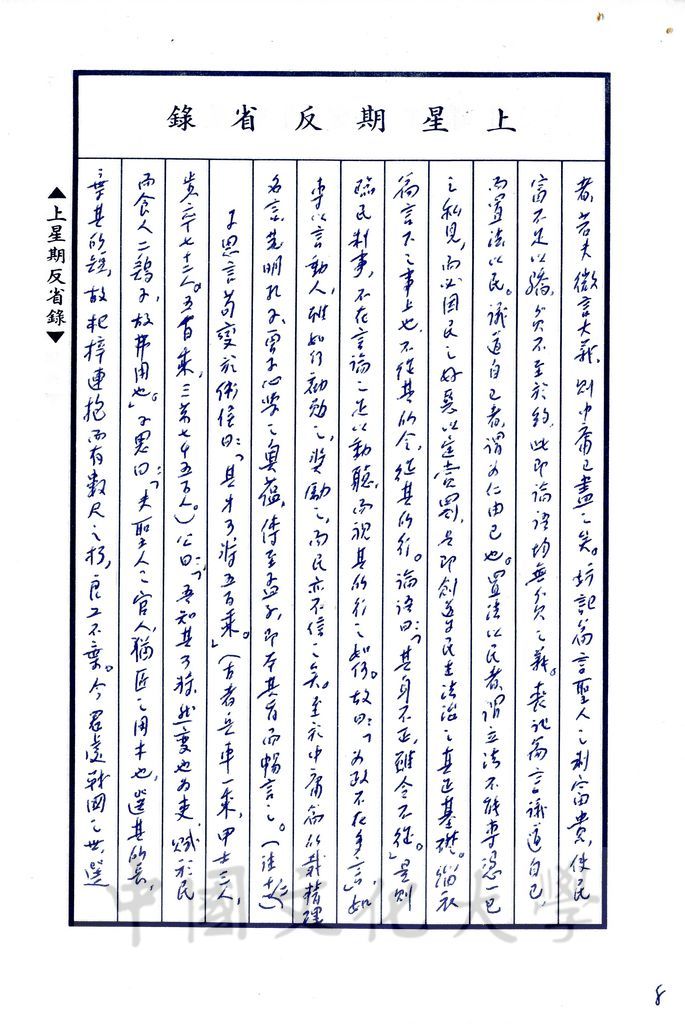 上星期反省錄
者，若夫微言大義，則中庸已盡之矣。坊記篇言聖人之制富貴，使民
富不足以驕，貧不至於約，此即論語均無貧之義。表記篇言議道自己，
而置法以民。議道自己者，謂為仁由己也。置法以民者，謂立法不能專憑一己
之私見，而必因民之好惡以定賞罰，是即創造民主法治之真正基礎。緇衣
篇言下之事上也，不從其所令，從其所行。論語曰：「其身不正，雖令不從。」是則
臨民料事，不在言論之足以動聽，而視其所行之如何。故曰：「為政不在多言」，如
專以言動人，雖如何勸勉之，獎勵之，而民亦不信之矣。至於中庸篇所載精理
名言，先明孔子、曾子心學之奧蘊，傳至孟子，即本其旨而暢言之。
子思言苟變於衛侯曰：「其才可將五百乘。」（古者兵車一乘，甲士三人，
步卒七十二人。五百乘，三萬七千五百人。）公曰：「吾知其可將，然變也為吏，賦於民
而食人二鷄子，故弗用也。」子思曰：「夫聖人之官人，猶匠之用木也，選其所長，
棄其所短，故杞梓連抱而有數尺之朽，良工不棄。今君處戰國之世，選
▲上星期反省錄▼
中國文化大學
8